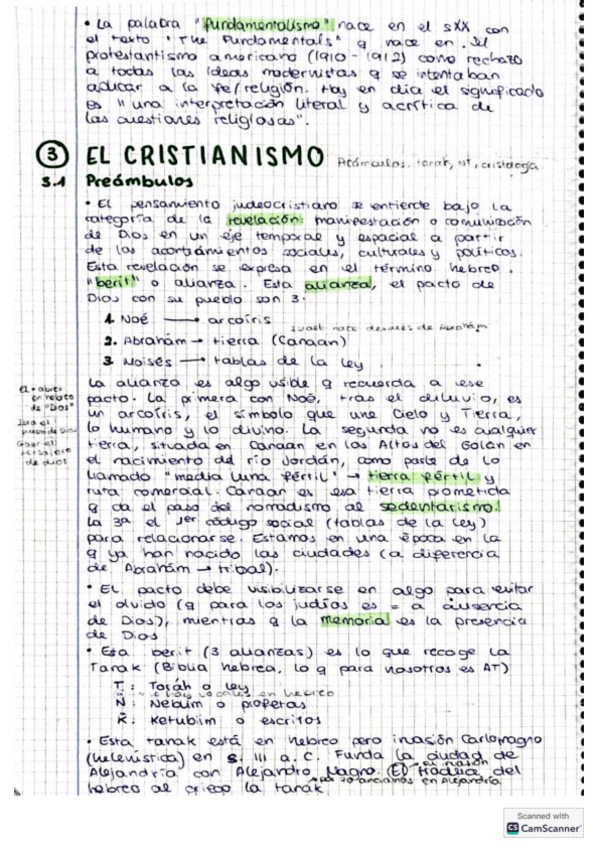 • La palabra "fundamentalismo" nace en el sXX con
el texto "The Fundamentals" q nace en el
protestantismo americano (1910-1912) como rechazo
a todas las ideas modernistas q se intentaban
aplicar a la fe/religión. Hoy en día el significado
es "una interpretación literal y acrítica de
las cuestiones religiosas".
③ EL CRISTIANISMO Preámbulos, tanak, NT, cristología
3.1 Preámbulos
• El pensamiento judeocristiano se entiende bajo la
categoría de la revelación: manifestación o comunicación
de Dios en un eje temporal y espacial a partir
de los acontecimientos sociales, culturales y políticos.
Esta revelación se expresa en el término hebreo
"berit" o alianza. Esta alianza, el pacto de
Dios con su pueblo son 3:
1. Noé → arcoíris
Israel nace después de Abraham
2. Abrahám → tierra (Canaan)
3. Moisés → tablas de la ley
La alianza es algo visible q recuerda a ese
pacto. La primera con Noé, tras el diluvio, es
un arcoíris, el símbolo que une Cielo y Tierra,
lo humano y lo divino. La segunda no es cualquier
tierra, situada en Canaan en los Altos del Golán en
el nacimiento del río Jordán, como parte de lo
llamado "media luna fértil" → tierra fértil y
ruta comercial. Canaan es esa tierra prometida
q da el paso del nomadismo al sedentarismo.
La 3ª el 1er código social (tablas de la ley)
para relacionarse. Estamos en una época en la
q ya han nacido las ciudades (a diferencia
de Abrahám → tribal).
de "Dios"
de dios
• El pacto debe visibilizarse en algo para evitar
el olvido (q para los judíos es = a ausencia
de Dios), mientras q la memoria es la presencia
de Dios
• Esta berit (3 alianzas) es lo que recoge la
Tanak (Biblia hebrea, lo q para nosotros es AT)
T: Toráh o ley
no hay vocales en hebreo
N: Nebiim o profetas
K: Ketubiim o escritos
• Esta tanak está en hebreo pero Carlomagno
(helenística) en s. III a. C. Funda la ciudad de
Alejandría con Alejandro Magno. del
por 70 ancianos en Alejandría
hebreo al griego la tanak
Scanned with
CS CamScanner